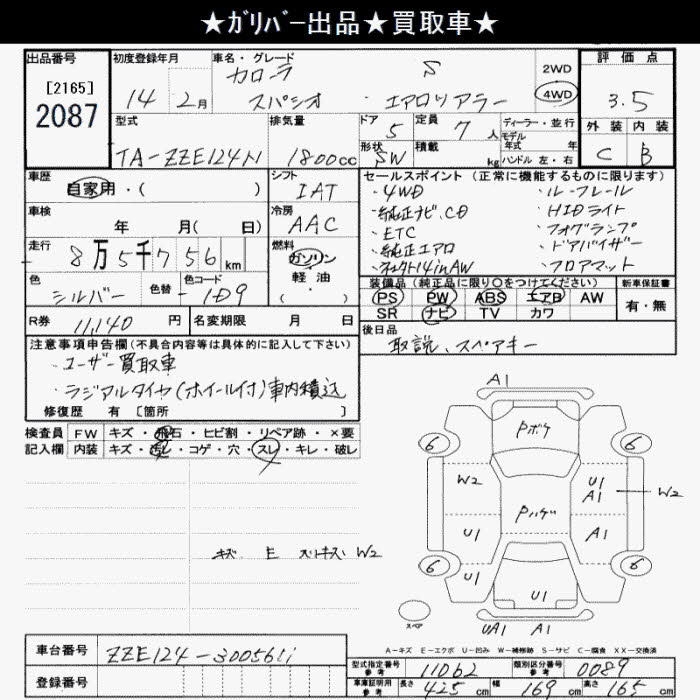 ★ｶﾞﾘﾊﾞｰ出品★買取車★
出品番号 初度登録年月 車名・グレード 評価点
[2165] カローラ S 2WD
2087 14年 2月 スパシオ ・エアロツアラー 4WD 3.5
型式 排気量 ドア 5 定員 7人 ディーラー・並行 外装 内装
モデル年式 年式
TA-ZZE124N 1800cc 形状 SW 積載 kg ハンドル 左・右 C B
車歴 自家用・( ) シフト IAT セールスポイント (正常に機能するものに限ります)
・4WD ・ルーフレール
車検 年 月( 日) 冷房 AAC ・純正ナビ,CD ・HIDライト
・ETC ・フォグランプ
走行 8万5千756km 燃料 ガソリン ・純正エアロ ・ドアバイザー
軽油 14inAW ・フロアマット
色 シルバー 色替 - 色コード 1D9 ・( )
装備品(純正品に限り○をつけてください) 新車保証書
PS PW ABS エアB AW 有・無
SR ナビ TV カワ
R券 11,140円 名変期限 月 日 後日品
取説、スペアキー
注意事項申告欄(不具合内容等は具体的に記入して下さい)
・ユーザー買取車
・ラジアルタイヤ(ホイール付)車内積込
修復歴 有 [箇所 ]
検査員 FW キズ・飛石・ヒビ割・リペア跡・×要
記入欄 内装 キズ・汚レ・コゲ・穴・スレ・キレ・破レ
A1
Pボケ
6 6
W2 U1 A1 W2
Pハゲ
U1 A1
キズ E W2
6 U1 6
U1
スペア UA1 A1
A-キズ E-エクボ U-凹み W-補修跡 S-サビ C-腐食 XX-交換済
車台番号 ZZE124-3005611
登録番号
型式指定番号 参考 11062 類別区分番号 参考 0089
車庫証明用 参考 長さ 425cm 幅 169cm 高さ 165cm